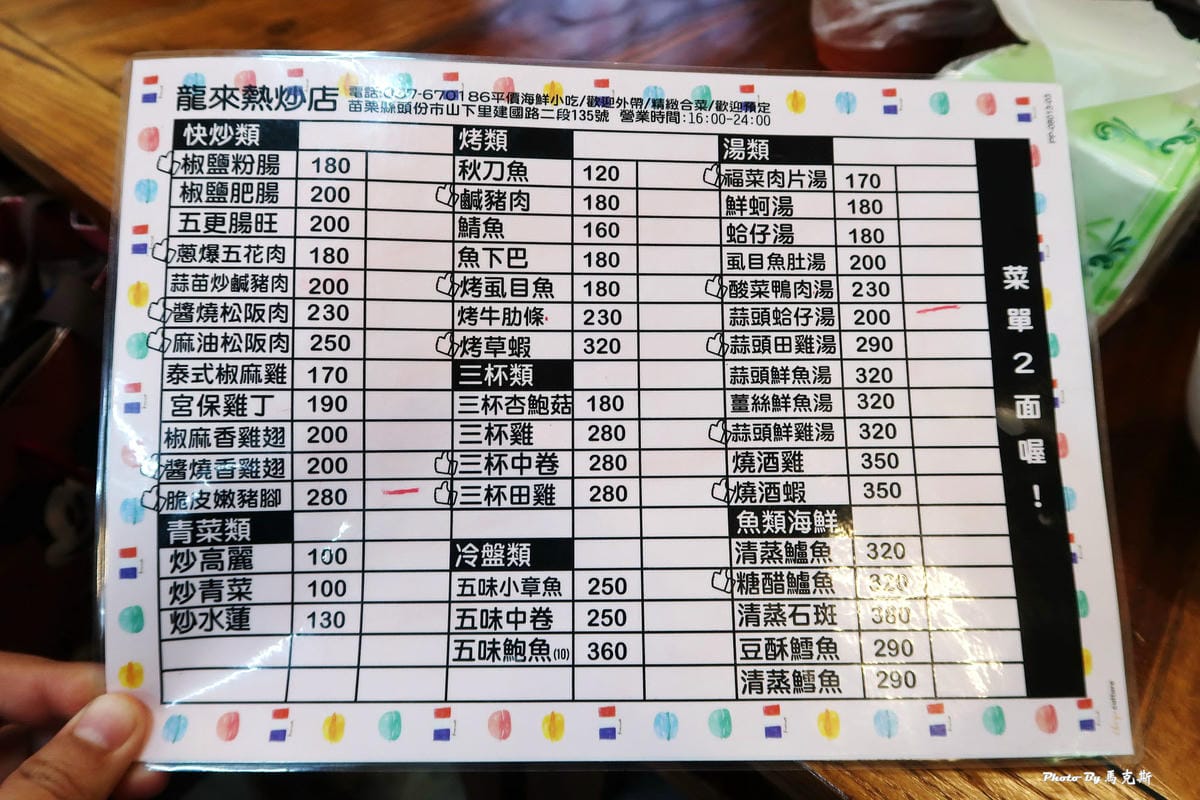 龍來熱炒店
電話:037-670186平價海鮮小吃/歡迎外帶/精緻合菜/歡迎預定
苗栗縣頭份市山下里建國路二段135號 營業時間:16:00-24:00
快炒類
椒鹽粉腸 180
椒鹽肥腸 200
五更腸旺 200
蔥爆五花肉 180
蒜苗炒鹹豬肉 200
醬燒松阪肉 230
麻油松阪肉 250
泰式椒麻雞 170
宮保雞丁 190
椒麻香雞翅 200
醬燒香雞翅 200
脆皮嫩豬腳 280
青菜類
炒高麗 100
炒青菜 100
炒水蓮 130
烤類
秋刀魚 120
鹹豬肉 180
鯖魚 160
魚下巴 180
烤虱目魚 180
烤牛肋條 230
烤草蝦 320
三杯類
三杯杏鮑菇 180
三杯雞 280
三杯中卷 280
三杯田雞 280
冷盤類
五味小章魚 250
五味中卷 250
五味鮑魚(10) 360
湯類
福菜肉片湯 170
鮮蚵湯 180
蛤仔湯 180
虱目魚肚湯 200
酸菜鴨肉湯 230
蒜頭蛤仔湯 200
蒜頭田雞湯 290
蒜頭鮮魚湯 320
薑絲鮮魚湯 320
蒜頭鮮雞湯 320
燒酒雞 350
燒酒蝦 350
魚類海鮮
清蒸鱸魚 320
糖醋鱸魚 320
清蒸石斑 380
豆酥鱈魚 290
清蒸鱈魚 290
菜單2面喔！
Photo By 馬克斯